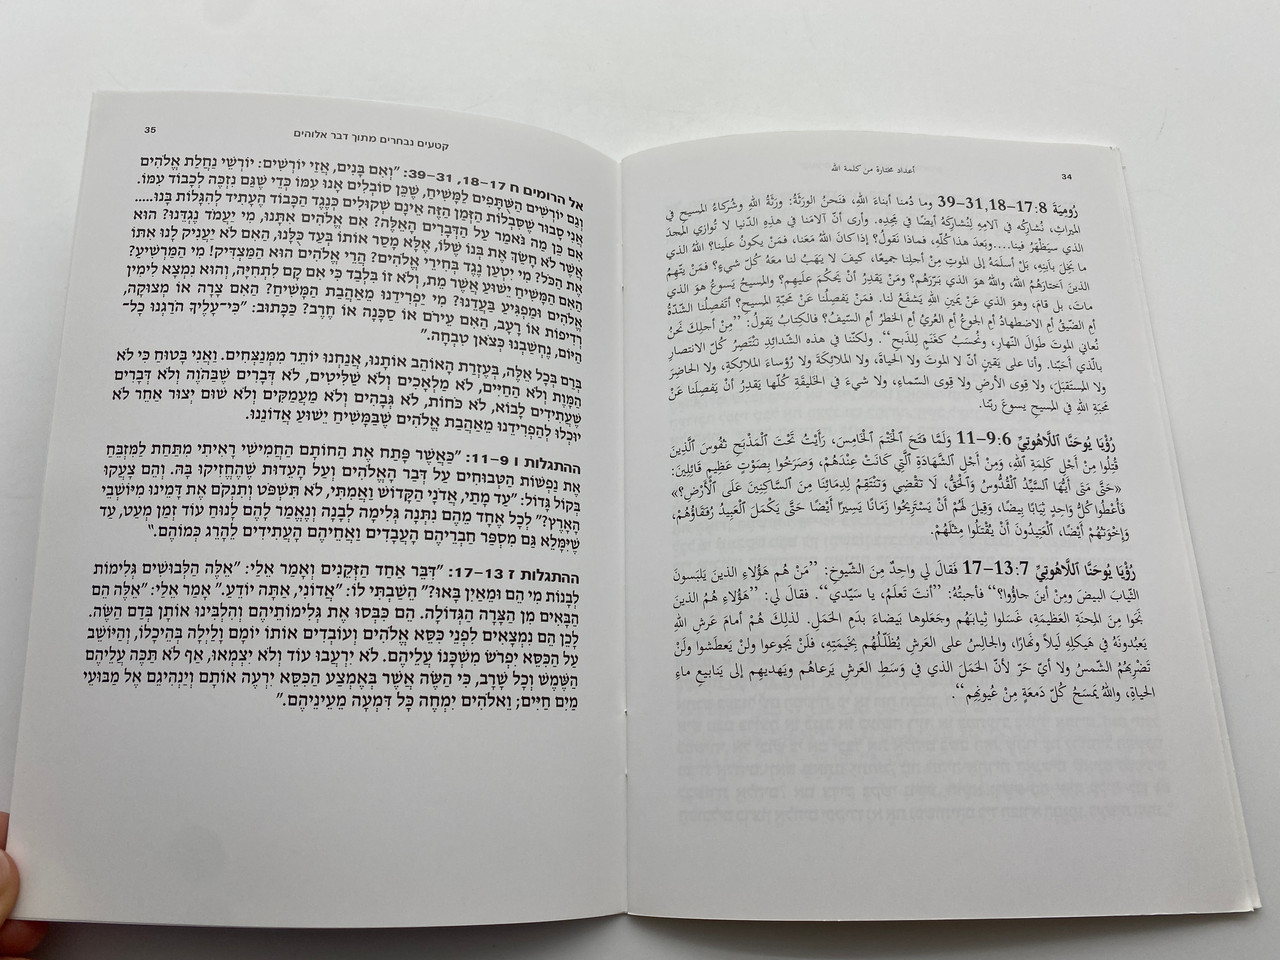 34
أعداد مختارة من كلمة الله
رُومِيَةَ 8:17–18,31–39 وما دُمنا أبناءَ اللهِ، فنَحنُ الورَثَةُ: ورَثَةُ اللهِ وشُركاءُ المسيحِ في
الميراثِ، نُشارِكُه في آلامِهِ لِنُشارِكَه أيضًا في مَجدِهِ. وأرى أنَّ آلامَنا في هذِهِ الدُّنيا لا تُوازي المَجدَ
الذي سيَظْهَرُ فينا....وبَعدَ هذا كُلِّهِ، فماذا نَقولُ؟ إذا كانَ اللهُ مَعَنا، فمَنْ يكونُ علَينا؟ اللهُ الذي
ما بَخِلَ بابنِهِ، بَلْ أسلَمَهُ إلى الموتِ مِنْ أجلِنا جميعًا، كيفَ لا يَهَبُ لنا معَهُ كُلَّ شيءٍ؟ فمَنْ يتَّهِمُ
الذينَ اَختارَهُمُ اللهُ، واللهُ هوَ الذي بَرَّرَهُم؟ ومَنْ يَقدِرُ أنْ يَحكُمَ علَيهِم؟ والمسيحُ يَسوعُ هوَ الذي
ماتَ، بل قامَ، وهوَ الذي عَنْ يَمينِ اللهِ يَشفَعُ لنا. فمَنْ يَفصِلُنا عَنْ محبَّةِ المَسيحِ؟ أتَفصِلُنا الشِّدَّةُ
أمِ الضّيقُ أمِ الاضطِهادُ أمِ الجوعُ أمِ العُريُ أمِ الخطَرُ أمِ السَّيفُ؟ فالكِتابُ يَقولُ: ”مِنْ أجلِكَ نَحنُ
نُعاني الموتَ طَوالَ النَّهارِ، ونُحسَبُ كغَنَمٍ لِلذَّبحِ“. ولكنَّنا في هذِهِ الشَّدائِدِ نَنتَصِرُ كُلَّ الانتِصارِ
بالّذي أحَبَّنا. وأنا على يَقينٍ أنَّ لا الموتَ ولا الحياةَ، ولا المَلائِكَةَ ولا رُؤساءَ المَلائِكَةِ، ولا الحاضِرَ
ولا المُستَقبَلَ، ولا قِوى الأرضِ ولا قِوى السَّماءِ، ولا شيءَ في الخَليقَةِ كُلِّها يَقدِرُ أنْ يَفصِلَنا عَنْ
محبَّةِ اللهِ في المَسيحِ يَسوعَ ربِّنا.
رُؤْيَا يُوحَنَّا ٱللَّاهُوتِيِّ 6:9–11 وَلَمَّا فَتَحَ ٱلْخَتْمَ ٱلْخَامِسَ، رَأَيْتُ تَحْتَ ٱلْمَذْبَحِ نُفُوسَ ٱلَّذِينَ
قُتِلُوا مِنْ أَجْلِ كَلِمَةِ ٱللهِ، وَمِنْ أَجْلِ ٱلشَّهَادَةِ ٱلَّتِي كَانَتْ عِنْدَهُمْ، وَصَرَخُوا بِصَوْتٍ عَظِيمٍ قَائِلِينَ:
«حَتَّى مَتَى أَيُّهَا ٱلسَّيِّدُ ٱلْقُدُّوسُ وَٱلْحَقُّ، لَا تَقْضِي وَتَنْتَقِمُ لِدِمَائِنَا مِنَ ٱلسَّاكِنِينَ عَلَى ٱلْأَرْضِ؟»
فَأُعْطُوا كُلُّ وَاحِدٍ ثِيَابًا بِيضًا، وَقِيلَ لَهُمْ أَنْ يَسْتَرِيحُوا زَمَانًا يَسِيرًا أَيْضًا حَتَّى يَكْمَلَ ٱلْعَبِيدُ رُفَقَاؤُهُمْ،
وَإِخْوَتُهُمْ أَيْضًا، ٱلْعَتِيدُونَ أَنْ يُقْتَلُوا مِثْلَهُمْ.
رُؤْيَا يُوحَنَّا ٱللَّاهُوتِيِّ 7:13–17 فَقالَ لي واحِدٌ مِنَ الشُّيوخِ: ”مَنْ هُم هَؤُلاءِ الذينَ يَلبَسونَ
الثِّيابَ البيضَ ومِنْ أينَ جاؤُوا؟“ فأجبتُهُ: ”أنتَ تَعلَمُ، يا سَيِّدي“. فقالَ لي: ”هَؤُلاءِ هُمُ الذينَ
نَجَوا مِنَ المِحنَةِ العَظيمَةِ، غَسَلوا ثِيابَهُم وجَعَلوها بَيضاءَ بِدَمِ الحَمَلِ. لذلِكَ هُمْ أمامَ عَرشِ اللهِ
يَعبُدونَهُ في هَيكَلِهِ لَيلاً ونَهارًا، والجالِسُ على العَرشِ يُظَلِّلُهُم بِخَيمَتِهِ، فلَنْ يَجوعوا ولَنْ يَعطَشوا ولَنْ
تَضرِبَهُمُ الشَّمسُ ولا أيُّ حَرّ لأنَّ الحَمَلَ الذي في وَسَطِ العَرشِ يَرعاهُم ويَهديهِم إلى يَنابيعِ ماءِ
الحياةِ، واللهُ يَمسَحُ كُلَّ دَمعَةٍ مِنْ عُيونِهِم“.
35
קטעים נבחרים מתוך דבר אלוהים
אל הרומים ח 17–18, 31–39: "וְאִם בָּנִים, אֲזַי יוֹרְשִׁים: יוֹרְשֵׁי נַחֲלַת אֱלֹהִים
וְגַם יוֹרְשִׁים הַשֻּׁתָּפִים לַמָּשִׁיחַ, שֶׁכֵּן סוֹבְלִים אָנוּ עִמּוֹ כְּדֵי שֶׁגַּם נִזְכֶּה לְכָבוֹד עִמּוֹ.
אֲנִי סָבוּר שֶׁסִּבְלוֹת הַזְּמַן הַזֶּה אֵינָם שְׁקוּלִים כְּנֶגֶד הַכָּבוֹד הֶעָתִיד לְהִגָּלוֹת בָּנוּ.....
אִם כֵּן מַה נֹּאמַר עַל הַדְּבָרִים הָאֵלֶּה? אִם אֱלֹהִים אִתָּנוּ, מִי יַעֲמֹד נֶגְדֵּנוּ? הוּא
אֲשֶׁר לֹא חָשַׂךְ אֶת בְּנוֹ שֶׁלּוֹ, אֶלָּא מָסַר אוֹתוֹ בְּעַד כֻּלָּנוּ, הַאִם לֹא יַעֲנִיק לָנוּ אִתּוֹ
אֶת הַכֹּל? מִי יִטְעַן נֶגֶד בְּחִירֵי אֱלֹהִים? הֲרֵי אֱלֹהִים הוּא הַמַּצְדִּיק! מִי הַמַּרְשִׁיעַ?
הַאִם הַמָּשִׁיחַ יֵשׁוּעַ אֲשֶׁר מֵת, וְלֹא זוֹ בִּלְבַד כִּי אִם קָם לִתְחִיָּה, וְהוּא נִמְצָא לִימִין
אֱלֹהִים וּמַפְגִּיעַ בַּעֲדֵנוּ? מִי יַפְרִידֵנוּ מֵאַהֲבַת הַמָּשִׁיחַ? הַאִם צָרָה אוֹ מְצוּקָה,
רְדִיפוֹת אוֹ רָעָב, הַאִם עֵירֹם אוֹ סַכָּנָה אוֹ חֶרֶב? כַּכָּתוּב: "כִּי-עָלֶיךָ הֹרַגְנוּ כָל-
הַיּוֹם, נֶחְשַׁבְנוּ כְּצֹאן טִבְחָה."
בְּרַם בְּכָל אֵלֶּה, בְּעֶזְרַת הָאוֹהֵב אוֹתָנוּ, אֲנַחְנוּ יוֹתֵר מִמְּנַצְּחִים. וַאֲנִי בָּטוּחַ כִּי לֹא
הַמָּוֶת וְלֹא הַחַיִּים, לֹא מַלְאָכִים וְלֹא שַׁלִּיטִים, לֹא דְּבָרִים שֶׁבַּהֹוֶה וְלֹא דְּבָרִים
שֶׁעֲתִידִים לָבוֹא, לֹא כֹּחוֹת, לֹא גְּבָהִים וְלֹא מַעֲמַקִּים וְלֹא שׁוּם יְצוּר אַחֵר לֹא
יוּכְלוּ לְהַפְרִידֵנוּ מֵאַהֲבַת אֱלֹהִים שֶׁבַּמָּשִׁיחַ יֵשׁוּעַ אֲדוֹנֵנוּ.
ההתגלות ו 9–11: "כַּאֲשֶׁר פָּתַח אֶת הַחוֹתָם הַחֲמִישִׁי רָאִיתִי מִתַּחַת לַמִּזְבֵּחַ
אֶת נַפְשׁוֹת הַטְּבוּחִים עַל דְּבַר הָאֱלֹהִים וְעַל הָעֵדוּת שֶׁהֶחֱזִיקוּ בָּהּ. וְהֵם צָעֲקוּ
בְּקוֹל גָּדוֹל: "עַד מָתַי, אֲדֹנָי הַקָּדוֹשׁ וַאֲמִתִּי, לֹא תִּשְׁפֹּט וְתִנְקֹם אֶת דָּמֵינוּ מִיּוֹשְׁבֵי
הָאָרֶץ?" לְכָל אֶחָד מֵהֶם נִתְּנָה גְּלִימָה לְבָנָה וְנֶאֱמַר לָהֶם לָנוּחַ עוֹד זְמַן מְעַט, עַד
שֶׁיִּמָּלֵא גַּם מִסְפַּר חַבְרֵיהֶם הָעֲבָדִים וַאֲחֵיהֶם הָעֲתִידִים לֵהָרֵג כְּמוֹהֶם."
ההתגלות ז 13–17: "דִּבֵּר אַחַד הַזְּקֵנִים וְאָמַר אֵלַי: "אֵלֶּה הַלְּבוּשִׁים גְּלִימוֹת
לְבָנוֹת מִי הֵם וּמֵאַיִן בָּאוּ?" הֵשַׁבְתִּי לוֹ: "אֲדוֹנִי, אַתָּה יוֹדֵעַ." אָמַר אֵלַי: "אֵלֶּה הֵם
הַבָּאִים מִן הַצָּרָה הַגְּדוֹלָה. הֵם כִּבְּסוּ אֶת גְּלִימוֹתֵיהֶם וְהִלְבִּינוּ אוֹתָן בְּדַם הַשֶּׂה.
לָכֵן הֵם נִמְצָאִים לִפְנֵי כִּסֵּא אֱלֹהִים וְעוֹבְדִים אוֹתוֹ יוֹמָם וָלַיְלָה בְּהֵיכָלוֹ, וְהַיּוֹשֵׁב
עַל הַכִּסֵּא יִפְרֹשׂ מִשְׁכָּנוֹ עֲלֵיהֶם. לֹא יִרְעֲבוּ עוֹד וְלֹא יִצְמְאוּ, אַף לֹא תַּכֶּה עֲלֵיהֶם
הַשֶּׁמֶשׁ וְכָל שָׁרָב, כִּי הַשֶּׂה אֲשֶׁר בְּאֶמְצַע הַכִּסֵּא יִרְעֶה אוֹתָם וְיַנְהִיגֵם אֶל מַבּוּעֵי
מַיִם חַיִּים; וֵאלֹהִים יִמְחֶה כָּל דִּמְעָה מֵעֵינֵיהֶם."